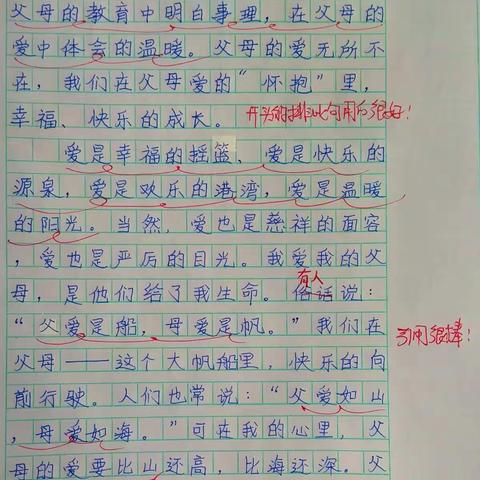 父母的教育中明白事理，在父母的
爱中体会的温暖。父母的爱无所不
在，我们在父母爱的“怀抱”里，
幸福、快乐的成长。开头的排比句用的很好！
爱是幸福的摇篮、爱是快乐的
源泉，爱是欢乐的港湾，爱是温暖
的阳光。当然，爱也是慈祥的面容
，爱也是严厉的目光。我爱我的父
母，是他们给了我生命。有人俗话说：
“父爱是船，母爱是帆。”我们在
父母——这个大帆船里，快乐的向
前行驶。人们也常说：“父爱如山
，母爱如海。”可在我的心里，父
母的爱要比山还高，比海还深。父
引用很棒！